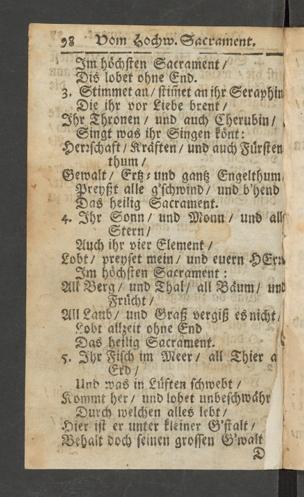 98 Vom Hochw. Sacrament.
Im höchsten Sacrament /
Dis lobet ohne End.
3. Stimmet an / stim̃et an ihr Seraphin
Die ihr vor Liebe brent /
Ihr Thronen / und auch Cherubin /
Singt was ihr Singen könt:
Herrschaft / Kräften / und auch Fürsten
thum /
Gewalt / Ertz- und gantz Engelthum
Preyßt alle g'schwind / und b'hend
Das heilig Sacrament.
4. Ihr Sonn / und Monn / und all
Stern /
Auch ihr vier Element /
Lobt / preyset mein / und euern HErrn
Im höchsten Sacrament:
All Berg / und Thal / all Bäum / und
Frücht /
All Laub / und Graß vergiß es nicht /
Lobt allzeit ohne End
Das heilig Sacrament.
5. Ihr Fisch im Meer / all Thier a
Erd /
Und was in Lüften schwebt /
Kommt her / und lobet unbeschwähr
Durch welchen alles lebt /
Hier ist er unter kleiner G'stalt /
Behalt doch seinen grossen G'walt
D